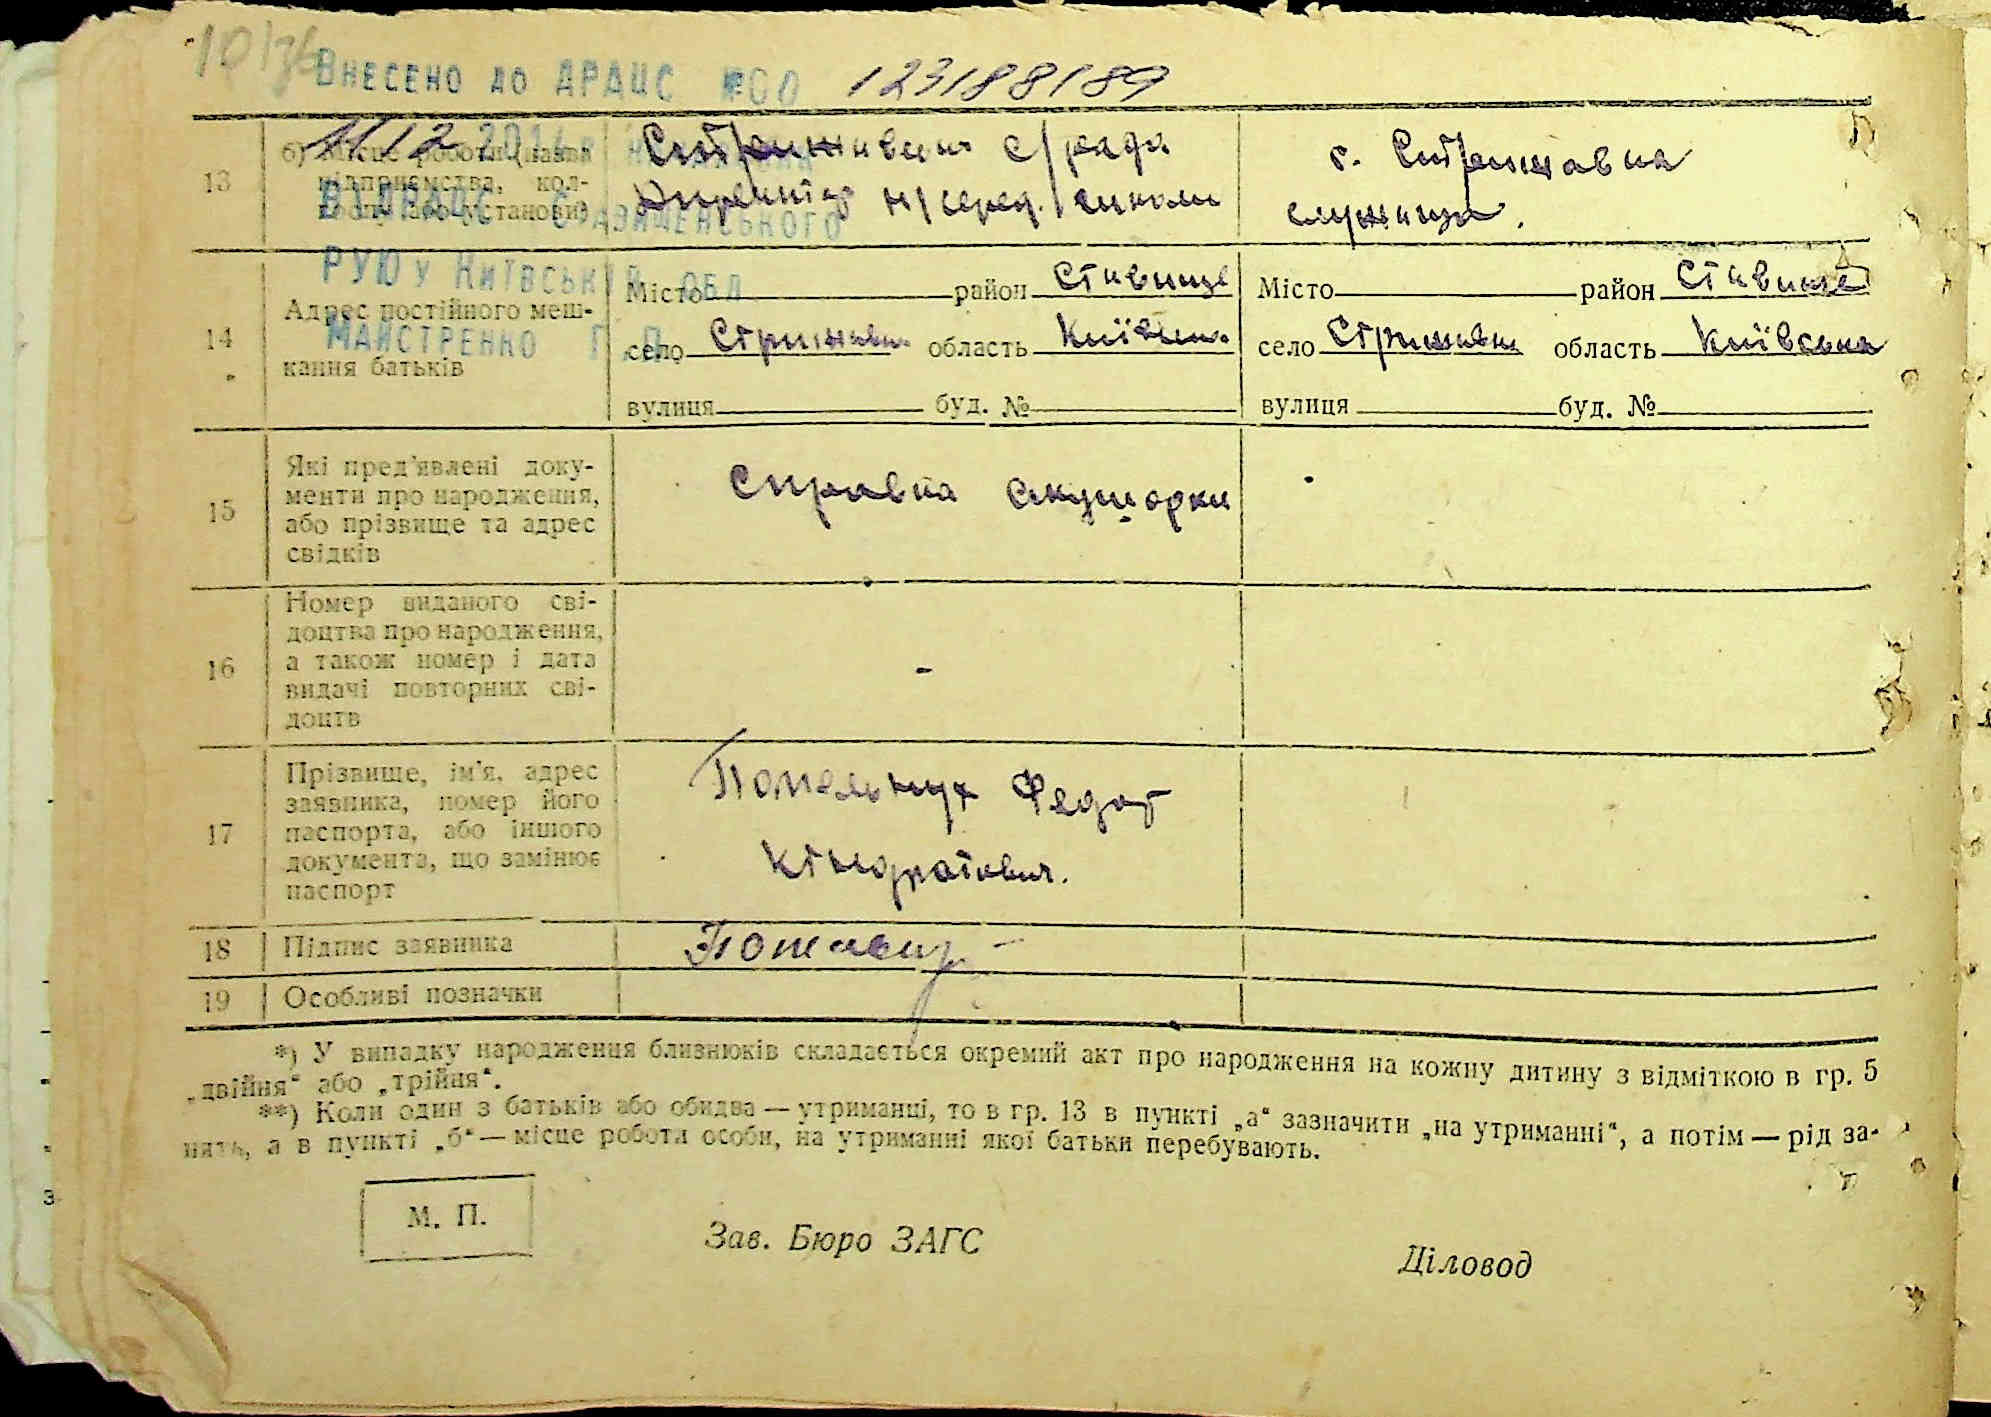 10/36
ВНЕСЕНО ДО ДРАЦС №00 123188189
11 12 201
ВІДРАЦС СТАВИЩЕНСЬКОГО
РУЮ У КИЇВСЬКІЙ ОБЛ
МАЙСТРЕНКО Г. П.
13 б) Місце роботи (назва підприємства, кол-
госпу або установи)
Стрижавська с/рада
Директор н/серед. школи
с. Стрижавка
служниця.
14 Адрес постійного меш-
кання батьків
Місто район Ставище
село Стрижавк. область Київськ.
вулиця буд. №
Місто район Ставище
село Стрижавк область Київська
вулиця буд. №
15 Які пред'явлені доку-
менти про народження,
або прізвище та адрес
свідків
Справка Акушорки
16 Номер виданого сві-
доцтва про народження,
а також номер і дата
видачі повторних сві-
доцтв
-
17 Прізвище, ім'я, адрес
заявника, номер його
паспорта, або іншого
документа, що замінює
паспорт
Попельнух Федот
Кіндратович.
18 Підпис заявника
19 Особливі позначки
*) У випадку народження близнюків складається окремий акт про народження на кожну дитину з відміткою в гр. 5
„двійня" або „трійня".
**) Коли один з батьків або обидва — утриманці, то в гр. 13 в пункті „а" зазначити „на утриманні", а потім — рід за-
нять, а в пункті „б" — місце роботи особи, на утриманні якої батьки перебувають.
М. П.
Зав. Бюро ЗАГС
Діловод